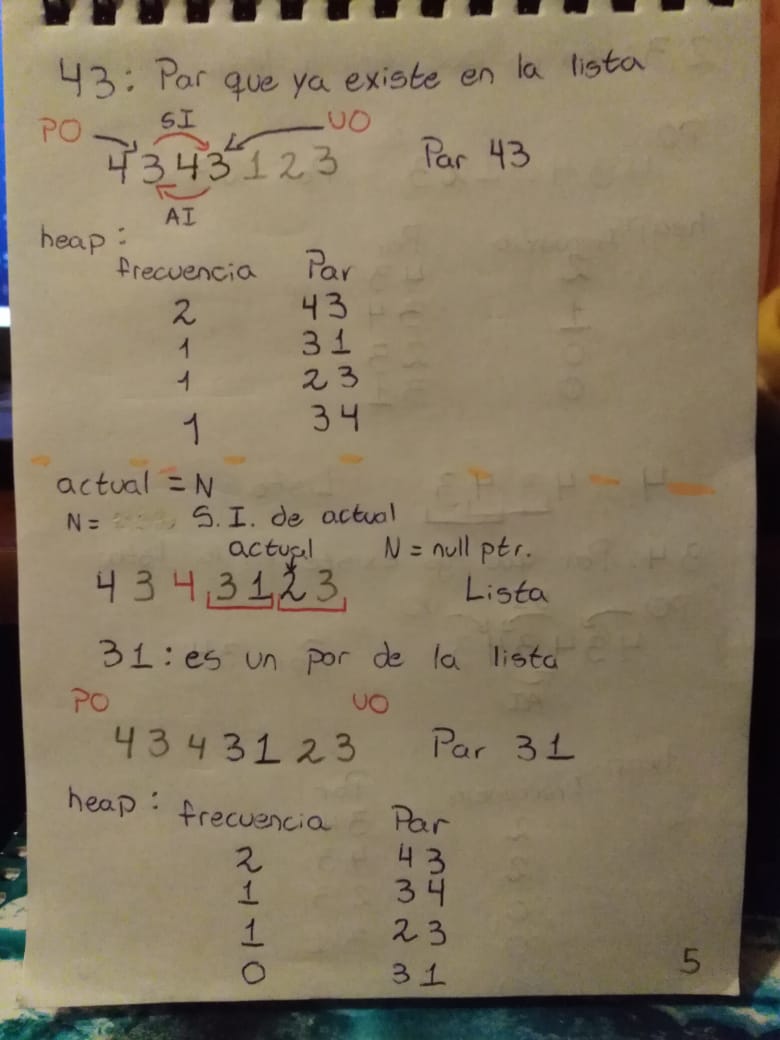 43: Par que ya existe en la lista
PO SI UO
4 3 4 3 1 2 3 Par 43
AI
heap:
frecuencia Par
2 43
1 31
1 23
1 34
actual = N
N = S.I. de actual
actual N = null ptr.
4 3 4 3 1 2 3 Lista
31: es un por de la lista
PO UO
4 3 4 3 1 2 3 Par 31
heap: frecuencia Par
2 43
1 34
1 23
0 31
5